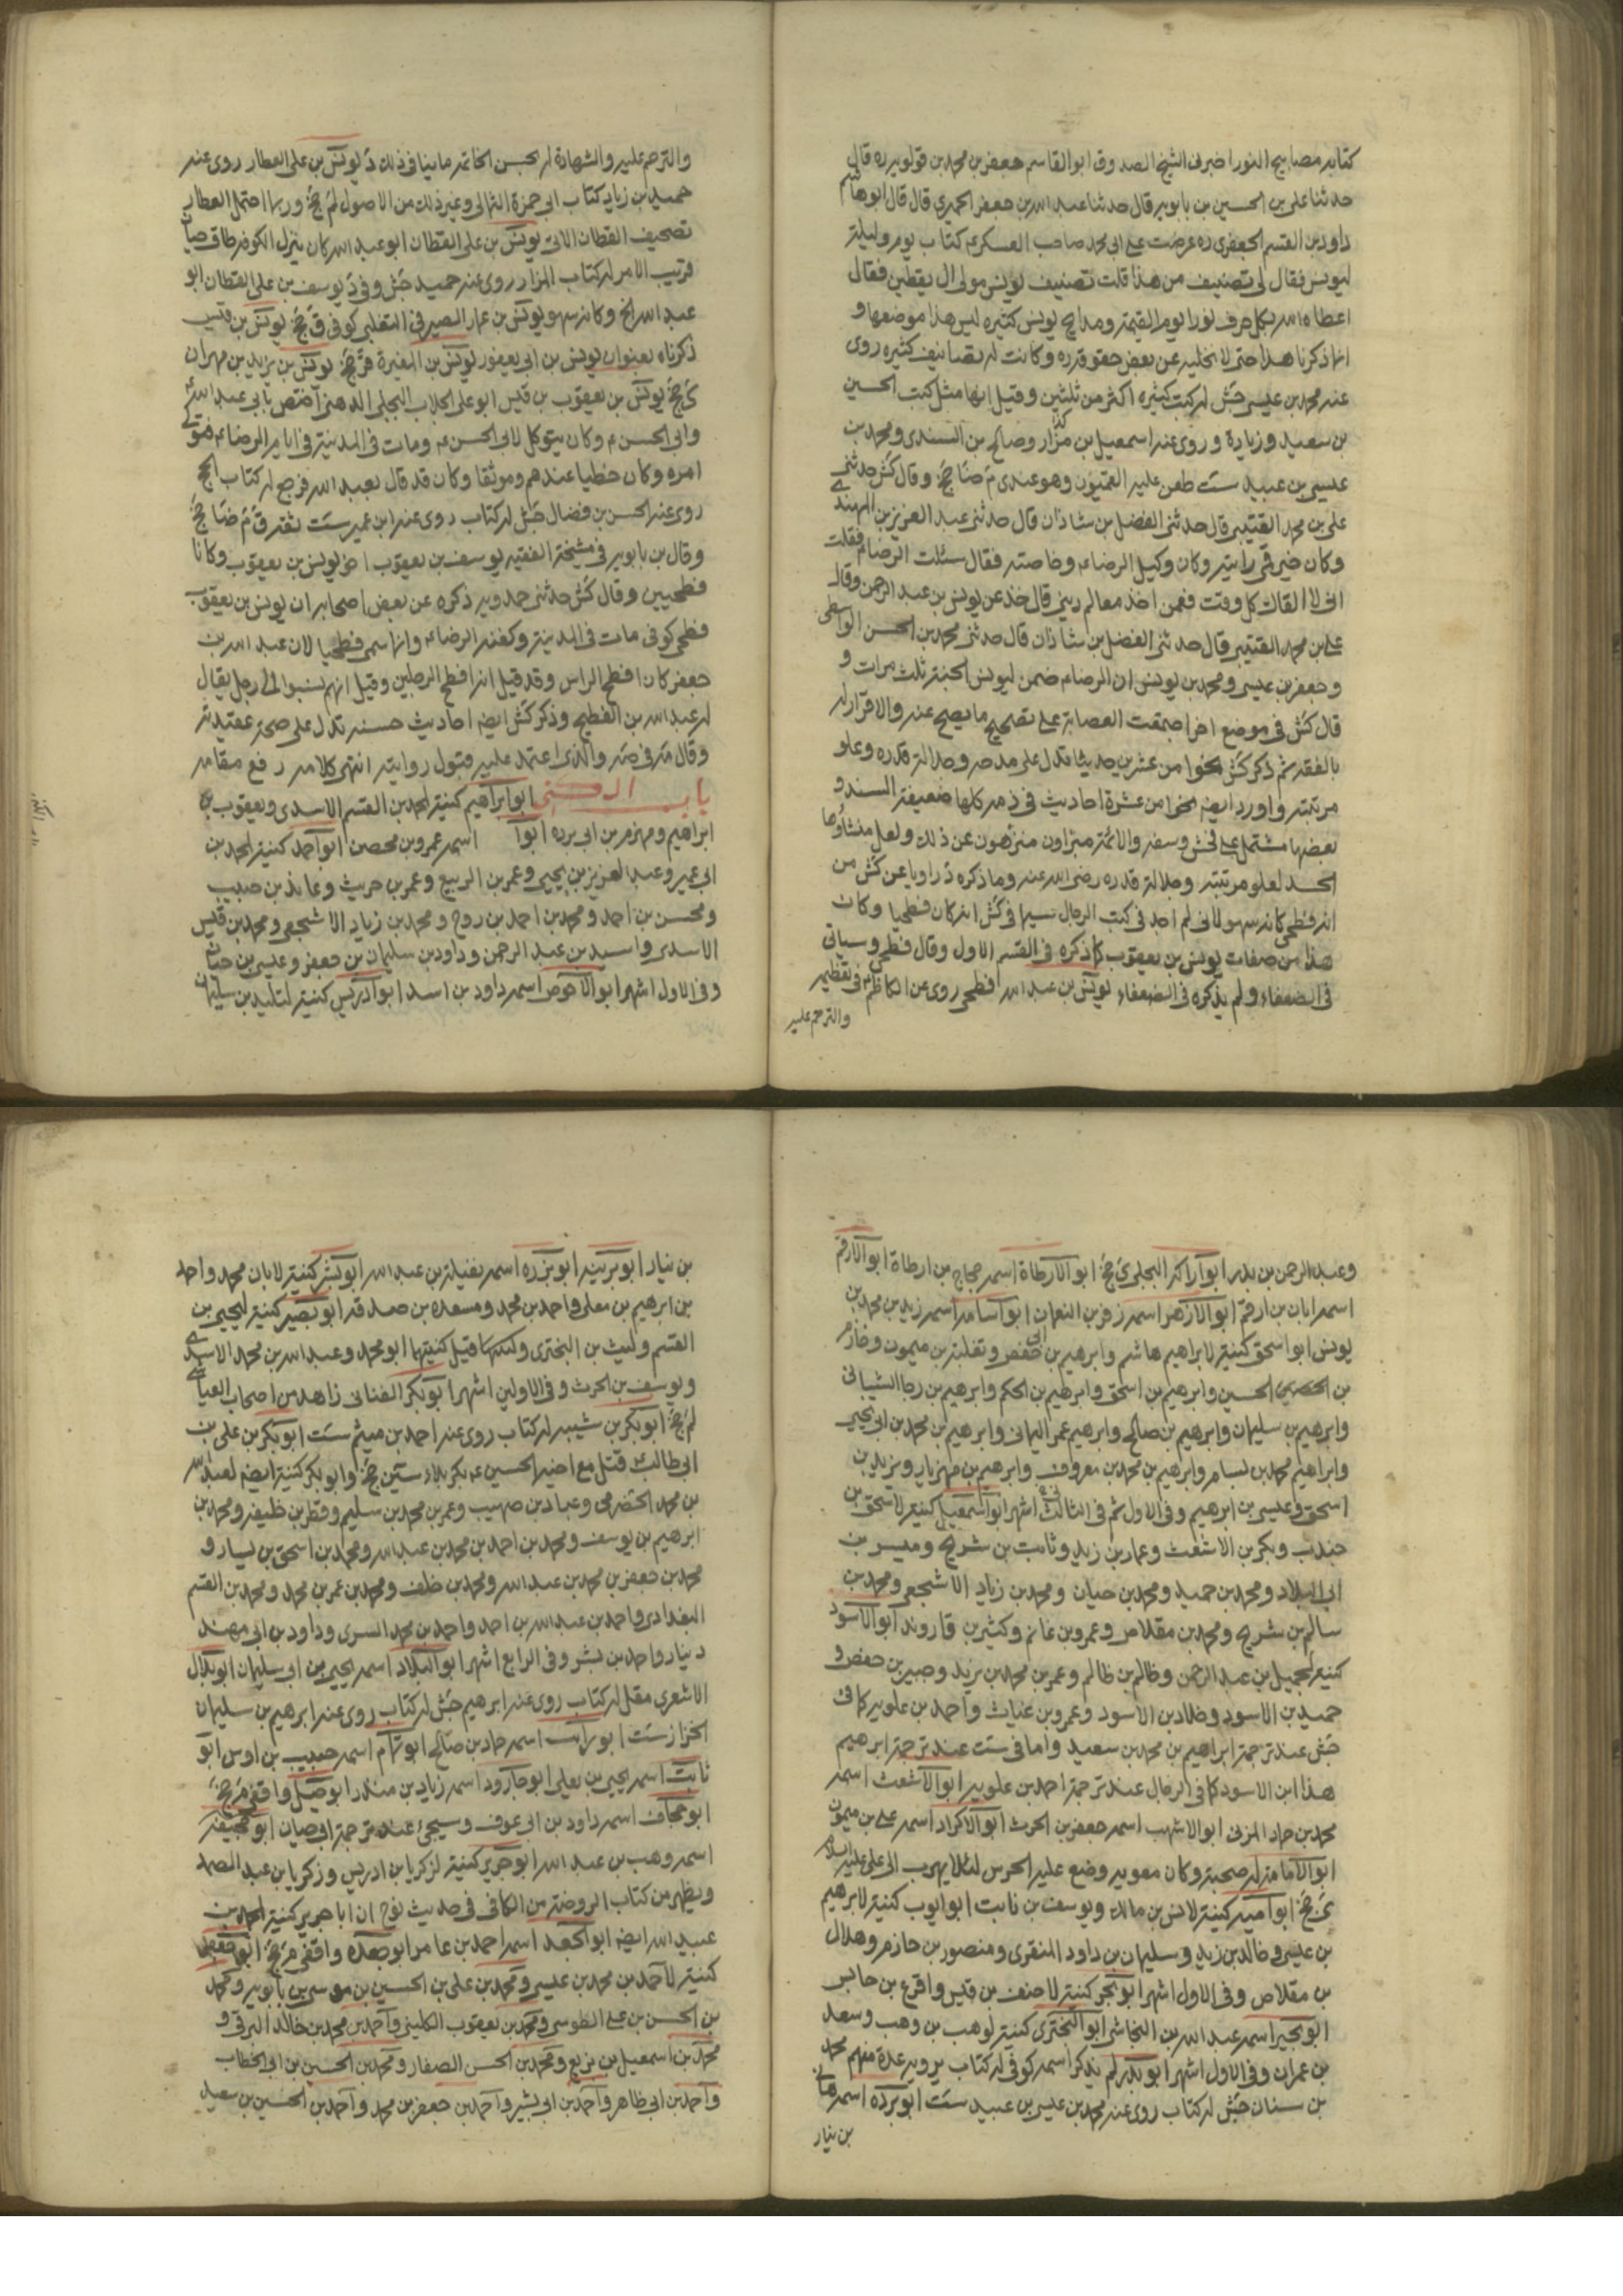 كتابه مصابيح النور اخبرنى الشيخ الصدوق ابوالقاسم جعفر بن محمد بن قولويه ره قال
حدثنا على بن الحسين بن بابويه قال حدثنا عبد الله بن جعفر الحميرى قال قال ابوهاشم
داود بن القسم الجعفرى ره عرضت على ابى محمد صاحب العسكر ع كتاب يوم وليلة
ليونس فقال لى تصنيف من هذا قلت تصنيف يونس مولى ال يقطين فقال
اعطاه الله بكل حرف نورا يوم القيمة ومدايح يونس كثيرة ليس هذا موضعها و
انما ذكرنا هذا حتى لا نخليه عن بعض حقوقه ره وكانت له تصانيف كثيره روى
عنه محمد بن عيسى جش له كتب كثيره اكثر من ثلثين وقيل انها مثل كتب الحسين
بن سعيد وزيادة وروى عنه اسمعيل بن مرار وصالح بن السندى ومحمد بن
عيسى بن عبيد ست طعن عليه القميون وهو عندى م ضا جخ وقال كش حدثنى
على بن محمد القتيبى قال حدثنى الفضل بن شاذان قال حدثنى عبد العزيز بن المهتدى
وكان خير قمى رايته وكان وكيل الرضا ع وخاصته فقال سئلت الرضا ع فقلت
انى لا القاك كل وقت فعمن اخذ معالم دينى قال خذ عن يونس بن عبد الرحمن وقال
على بن محمد القتيبى قال حدثنى الفضل بن شاذان قال حدثنى محمد بن الحسن الواسطى
وجعفر بن عيسى ومحمد بن يونس ان الرضا ع ضمن ليونس الجنة ثلث مرات و
قال كش فى موضع اخر اجمعت العصابة على تصحيح ما يصح عنه والاقرار له
بالفقه ثم ذكر كش نحوا من عشرين حديثا تدل على مدحه وجلالة قدره وعلو
مرتبته واورد ايضه نحوا من عشرة احاديث فى ذمه كلها ضعيفة السند و
بعضها مشتمل على فحش وسفه والائمة مبراون منزهون عن ذلك ولعل منشاؤها
الحسد لعلو مرتبته وجلالة قدره رضى الله عنه وما ذكره د راويا عن كش من
انه فطحى كانه سهو لانى لم اجد فى كتب الرجال سيما فى كش انه كان فطحيا وكان
هذا من صفات يونس بن يعقوب كما ذكره فى القسم الاول وقال فطحى وسياتى
فى الضعفاء ولم يذكره فى الضعفاء يونس بن عبد الله افطحى روى عن الكاظم ع فى تعظيم
والترحم عليه
والترحم عليه والشهادة له بحسن الخاتمة ما ينافى ذلك د يونس بن على العطار روى عنه
حميد بن زياد كتاب ابى حمزة الثمالى وغير ذلك من الاصول لم جخ وربما احتمل العطار
تصحيف القطان الاتى يونس بن على القطان ابو عبد الله كان ينزل الكوفه طاق حيان
قريب الامر له كتاب المزار روى عنه حميد جش وفى د يوسف بن على القطان ابو
عبد الله الخ وكانه سهو يونس بن عمار الصيرفى التغلبى كوفى ق جخ يونس بن قيس
ذكرناه بعنوان يونس بن ابى يعفور يونس بن المغيرة قر جخ يونس بن يزيد بن مهران
ى جخ يونس بن يعقوب بن قيس ابو على الجلاب البجلى الدهنى اختص بابى عبد الله ع
وابى الحسن ع وكان يتوكل لابى الحسن ع ومات فى المدينة فى ايام الرضا ع فتولى
امره وكان حظيا عندهم وموثقا وكان قد قال بعبد الله فرجع له كتاب الحج
روى عنه الحسن بن فضال جش له كتاب روى عنه ابن عمير ست ثقة ق م ضا جخ
وقال بن بابويه فى مشيخة الفقيه يوسف بن يعقوب اخو يونس بن يعقوب وكانا
فطحيين وقال كش حدثنى حمدويه ذكره عن بعض اصحابه ان يونس بن يعقوب
فطحى كوفى مات فى المدينة وكفنه الرضا ع وانما سمى فطحيا لان عبد الله بن
جعفر كان افطح الراس وقد قيل انه افطح الرجلين وقيل انهم نسبوا الى رجل يقال
له عبد الله بن الفطيح وذكر كش ايضه احاديث حسنة تدل على صحة عقيدته
وقال مه فى صه والذى اعتمد عليه قبول روايته انتهى كلامه رفع مقامه
باب الكنى ابو ابراهيم كنية لمحمد بن القسم الاسدى ويعقوب بن
ابراهيم ومهزم بن ابى برده ابوا اسمه عمرو بن محصن ابو احمد كنية لمحمد بن
ابى عمير وعبد العزيز بن يحيى وعمر بن الربيع وعمر بن حريث وعايذ بن حبيب
ومحسن بن احمد ومحمد بن احمد بن روح ومحمد بن زياد الاشجعى ومحمد بن قيس
الاسدى واسيد بن عبد الرحمن وداود بن سليمان بن جعفر وعيسى بن حنان
وفى الاول اشهر ابو الاحوص اسمه داود بن اسد ابو ادريس كنية لتليد بن سليمان
وعبد الرحمن بن بدر ابو اراكه البجلى ى جخ ابو الارطاة اسمه حجاج بن ارطاة ابو الارقم
اسمه ابان بن ارقم ابو الازهر اسمه زفر بن النعمان ابو اسامه اسمه زيد بن محمد بن
يونس ابو اسحق كنية لابراهيم هاشم وابرهيم بن ابى حفص وثعلبة بن ميمون وخازم
بن الحسين وابرهيم بن اسحق وابرهيم بن الحكم وابرهيم بن رجا الشيبانى
وابرهيم بن سليمان وابرهيم بن صالح وابرهيم عمر اليمانى وابرهيم بن محمد بن ابى يحيى
وابراهيم محمد بن بسام وابرهيم بن محمد بن معروف وابرهيم بن مهزيار ويزيد بن
اسحق وعيسى بن ابرهيم وفى الاول ثم فى الثالث اشهر ابو اسمعيل كنية لاسحق بن
جندب وبكر بن الاشعث وعمار بن زيد وثابت بن شريح وميسر بن
ابى البلاد ومحمد بن حميد ومحمد بن حيان ومحمد بن زياد الاشجعى ومحمد بن
سالم بن شريح ومحمد بن مقلاص وعمرو بن غانم وكثير بن قاروند ابو الاسود
كنية لجميل بن عبد الرحمن وظالم بن ظالم وعمر بن محمد بن يزيد وصبير بن حفص و
حميد بن الاسود وخلاد بن الاسود وعمرو بن غياث واحمد بن علويه كما فى
جش عند ترجمة ابراهيم بن محمد بن سعيد واما فى ست عند ترجمة ابرهيم
هذا ابن الاسود كما فى الرجال عند ترجمة احمد بن علويه ابو الاشعث اسمه
محمد بن حماد المزنى ابو الاشهب اسمه جعفر بن الحرث ابو الاكراد اسمه على بن ميمون
ابو الامامة له صحبة وكان معويه وضع عليه الحرس لئلا يهرب الى على عليه السلام
ى جخ ابو اميه كنية لانس بن مالك ويوسف بن ثابت ابو ايوب كنية لابرهيم
بن عيسى وخالد بن زيد وسليمان بن داود المنقرى ومنصور بن حازم وهلال
بن مقلاص وفى الاول اشهر ابو بحر كنية لاحنف بن قيس واقرع بن حابس
ابو بجير اسمه عبد الله بن النجاشى ابو البخترى كنية لوهب بن وهب وسعد
بن عمران وفى الاول اشهر ابو بدر لم يذكر اسمه كوفى له كتاب يرويه عدة منهم محمد
بن سنان جش له كتاب روى عنه محمد بن عيسى بن عبيد ست ابو برده اسمه هانى
بن نيار
بن نيار ابو بريد ابو برزه اسمه نفيلة بن عبد الله ابو بشر كنية لابان محمد واحمد
بن ابرهيم بن معلى واحمد بن محمد ومسعده بن صدقه ابو بصير كنية ليحيى بن
القسم وليث بن البخترى وكنتهما قيل كنيتهما ابو محمد وعبد الله بن محمد الاسدى
ويوسف بن الحرث وفى الاولين اشهر ابو بكر القنانى زاهد من اصحاب العياشى
لم جخ ابو بكر بن شيبه له كتاب روى عنه احمد بن ميثم ست ابو بكر بن على بن
ابى طالب قتل مع اخيه الحسين ع بكربلاء سين جخ وابو بكر كنية ايضه لعبد الله
بن محمد الحضرمى وعباد بن صهيب وعمر بن محمد بن سليم وفطر بن خليفه ومحمد بن
ابرهيم بن يوسف ومحمد بن احمد بن محمد بن عبد الله ومحمد بن اسحق بن يسار و
محمد بن جعفر بن محمد بن عبد الله ومحمد بن خلف ومحمد بن عمر بن محمد ومحمد بن القسم
البغدادى واحمد بن عبد الله بن احمد واحمد بن محمد السرى وداود بن ابى مهند
دينار واحمد بن بشر وفى الرابع اشهر ابو البلاد اسمه يحيى بن ابى سليمان ابو بلال
الاشعرى مقل له كتاب روى عنه ابرهيم جش له كتاب روى عنه ابرهيم بن سليمان
الخزاز ست ابو تراب اسمه حماد بن صالح ابو تمام اسمه حبيب بن اوس ابو
ثابت اسمه يحيى بن يعلى ابو جارود اسمه زياد بن منذر ابو جبل واقفى م جخ
ابو جحاف اسمه داود بن ابى عوف وسيجئ عند ترجمة ابى حيان ابو جحيفه
اسمه وهب بن عبد الله ابو جرير كنية لزكريا بن ادريس وزكريا بن عبد الصمد
ويظهر من كتاب الروضة من الكافى فى حديث نوح ان ابا جرير كنية لمحمد بن
عبيد الله ايضه ابو الجعد اسمه احمد بن عامر ابو جعده واقفى م جخ ابو جعفر
كنية لاحمد بن محمد بن عيسى ومحمد بن على بن الحسين بن موسى بن بابويه ومحمد
بن الحسن بن على الطوسى ومحمد بن يعقوب الكلينى واحمد بن محمد بن خالد البرقى و
محمد بن اسمعيل بن بزيع ومحمد بن الحسن الصفار ومحمد بن الحسين بن ابى الخطاب
واحمد بن ابى ظاهر واحمد بن ابى بشير واحمد بن جعفر بن محمد واحمد بن الحسين بن سعيد